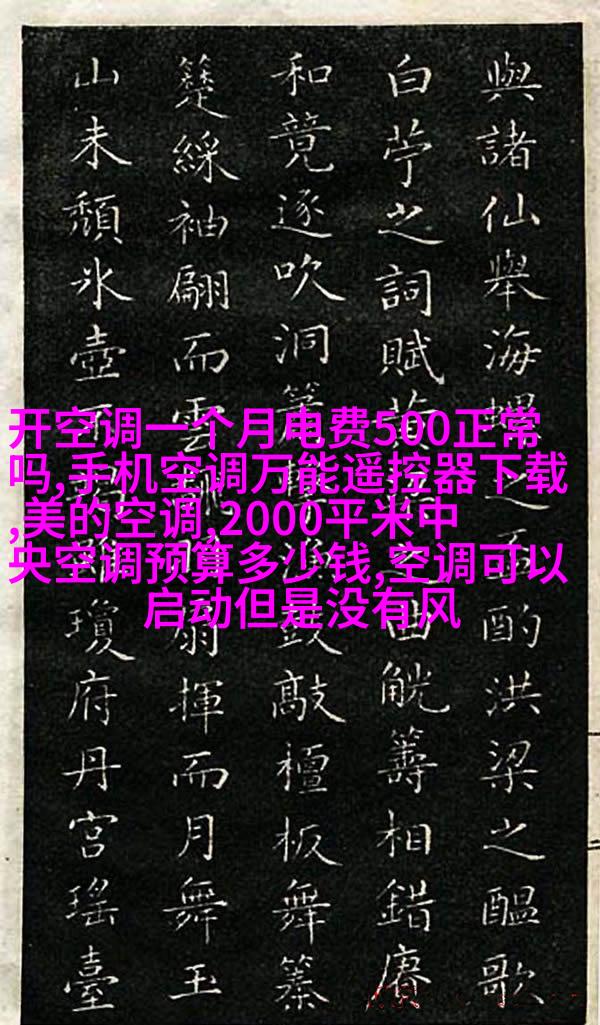 開空调一个月电费500正常
吗,手机空调万能遥控器下载
,美的空调,2000平米中
央空调预算多少钱,空调可以
启动但是没有风
與諸仙舉海螺之巵酌洪梁之醞歌
白苧之詞賦之曲觥籌相錯賡
和竟逐吹洞鼓敲檀板舞
綵袖翩而雲扇揮而月舞玉
山未頹冰壺瓊府丹宮瑤臺